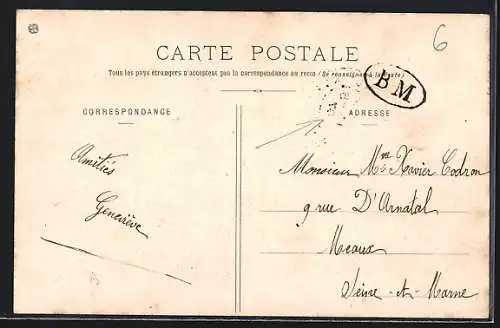 6
CARTE POSTALE
Tous les pays étrangers n'acceptent pas la correspondance au recto (Se renseigner à la Poste)
BM
CORRESPONDANCE
ADRESSE
Amitiés
Geneviève
Monsieur Mme Xavier Codron
9 rue D'Arnatal
Meaux
Seine-et-Marne